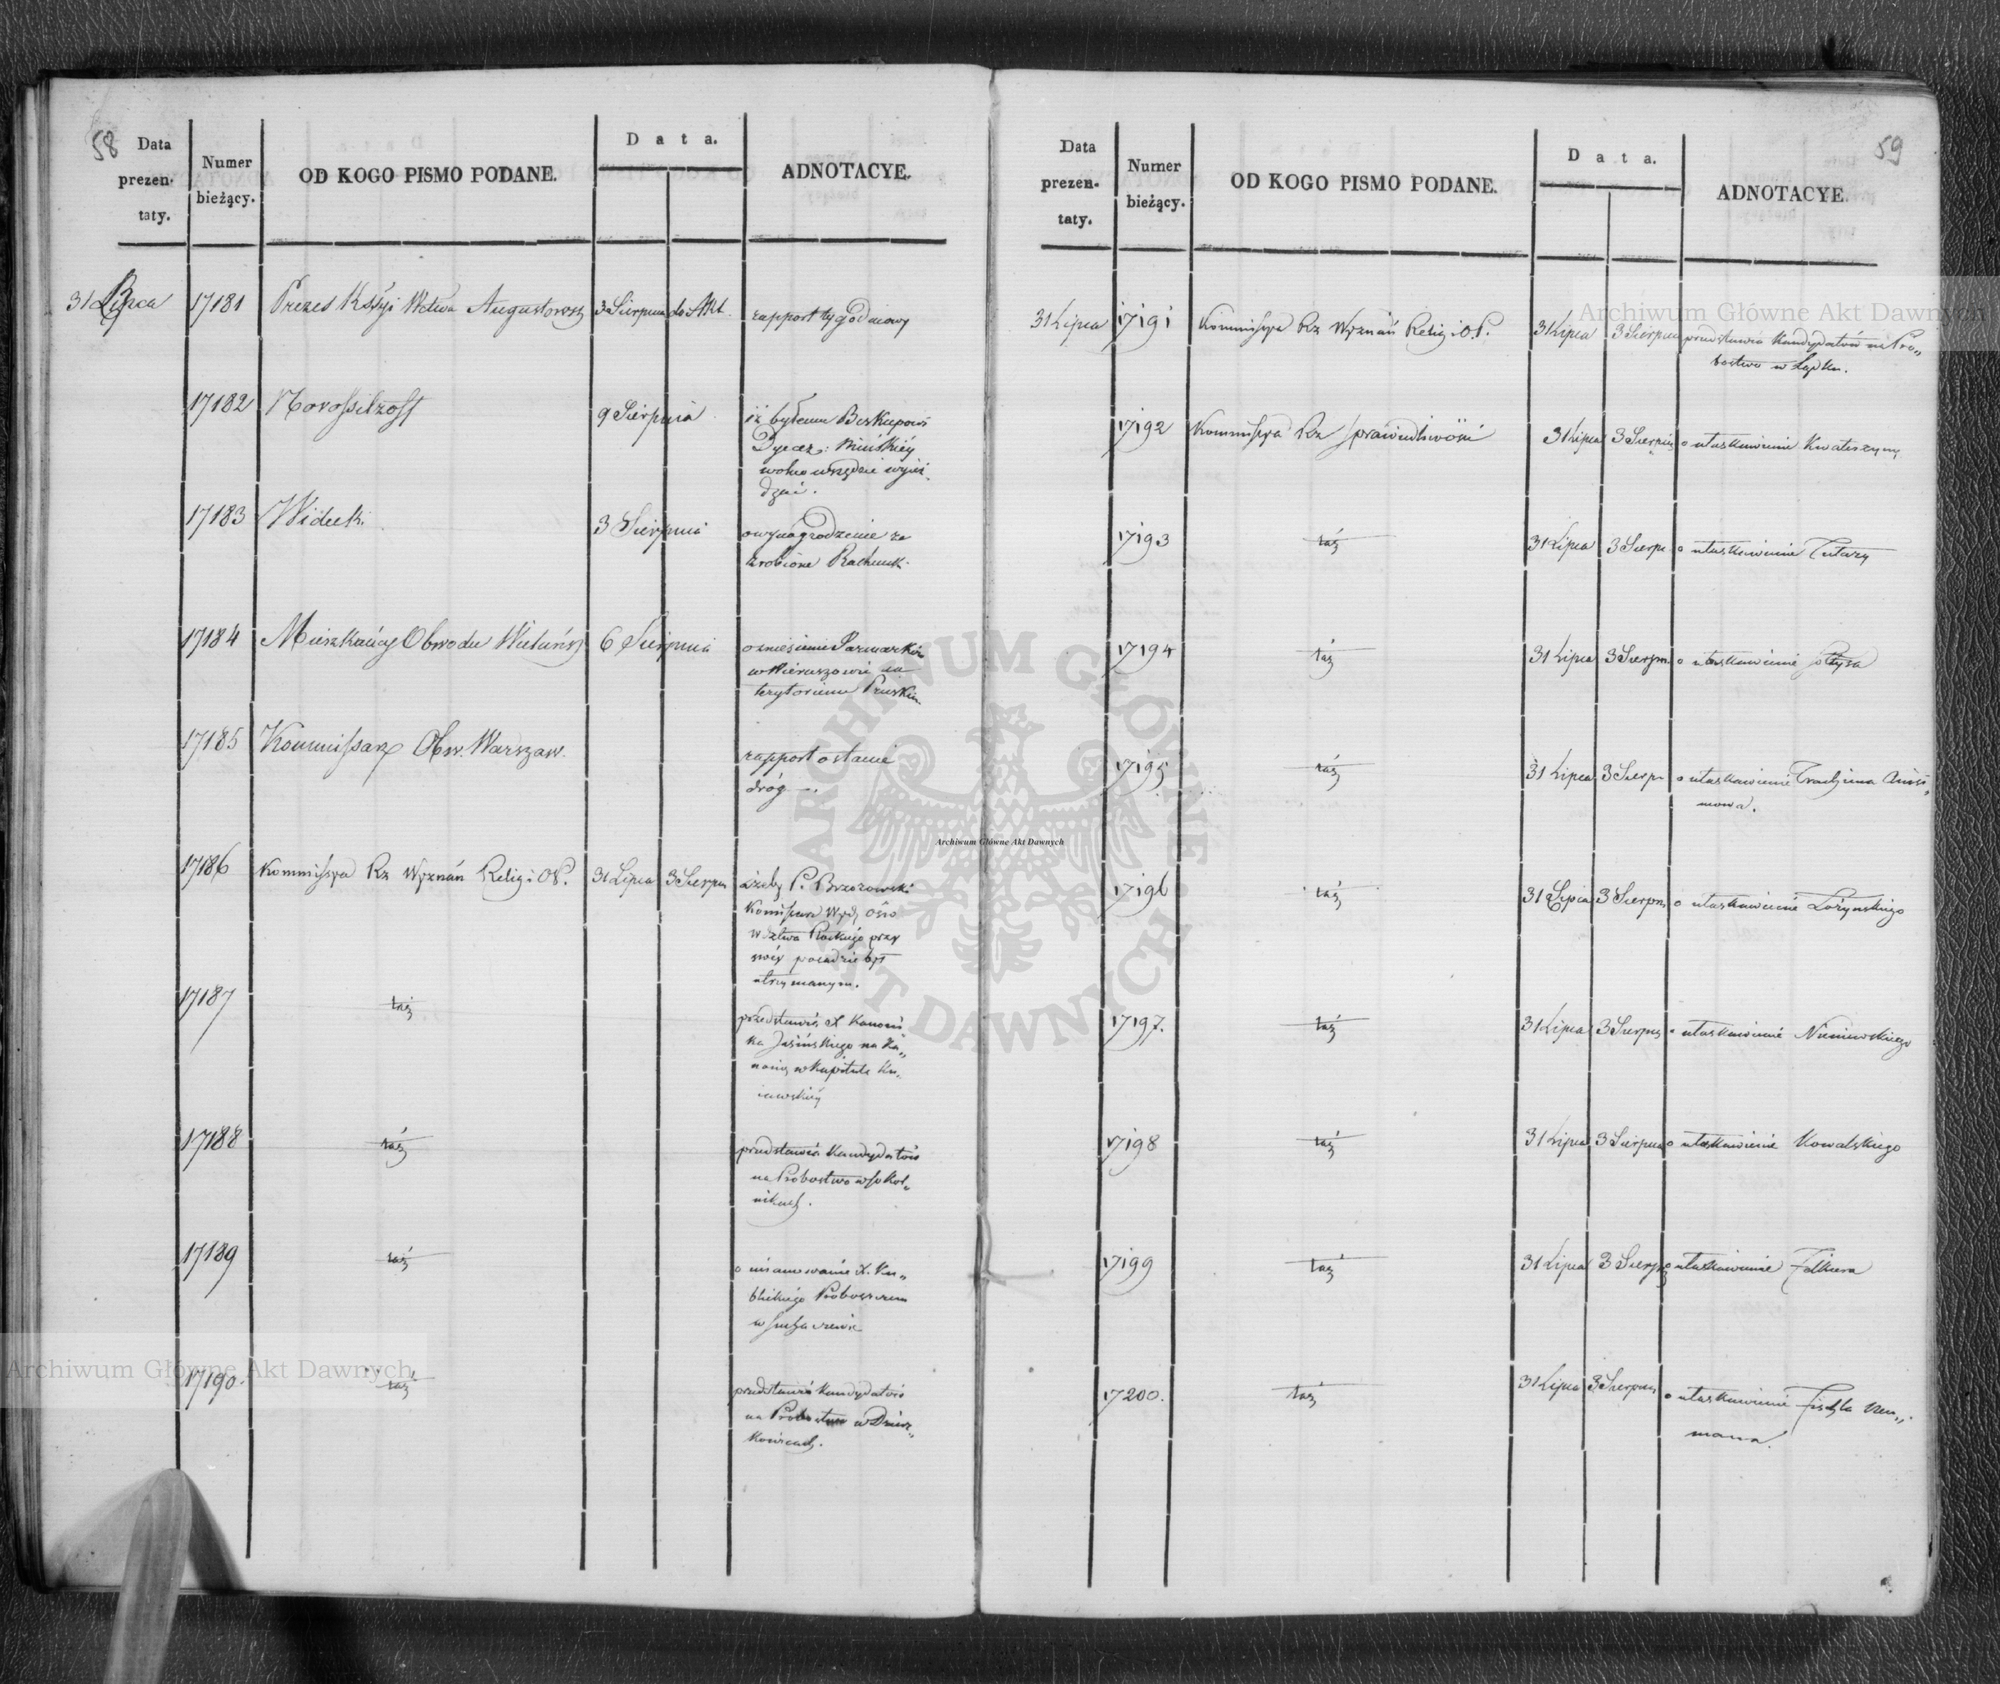 58
Data prezentaty.
Numer bieżący.
OD KOGO PISMO PODANE.
Data.
ADNOTACYE.
31 Lipca 17181 Prezes Kssyi Wctwa Augustowsk 3 Sierpnia do Akt. rapport tygodniowy
17182 Novossilzoff 9 Sierpnia iż byłemu Biskupowi
Dyecez: Mińskiéy
wolno wszędzie wyież-
dżać.
17183 Widecki 3 Sierpnia o wynagrodzenie za
zrobione Rachunk.
17184 Mieszkańcy Obwodu Wieluńsk 6 Sierpnia o zniesienie Jarmarków
w Wieruszowie na
terytorium Pruskim
17185 Kommissarz Obw. Warszaw. rapport o stanie
dróg
17186 Kommissya Rz Wyznań Relig: i OP. 31 Lipca 3 Sierpn ażeby P. Brzozowski
Komissarz Wydz Ośw
Wdztwa Płockiego przy
swéy posadzie był
utrzymanym.
17187 taż przedstawia X Kanoni
ka Jasińskiego na Ka„
nonią w Kapitule Ku„
iawskiéy
17188 taż przedstawia Kandydatów
na Probostwo w Sokol„
nikach.
17189 taż o mianowanie X. Ku„
blickiego Proboszczem
w
17190. taż przedstawia Kandydatów
na Probostwo w
59
Data prezentaty.
Numer bieżący.
OD KOGO PISMO PODANE.
Data.
ADNOTACYE.
31 Lipca 17191 Kommissya Rz Wyznań Relig: i O.P. 31 Lipca 3 Sierpnia przedstawia Kandydatów na Pro„
bostwo w Lądku.
17192 Kommissya Rz Sprawiedliwości 31 Lipca 3 Sierpnia o ułaskawienie Kwaterzyny
17193 taż 31 Lipca 3 Sierpn o ułaskawienie Tutary
17194 taż 31 Lipca 3 Sierpn. o ułaskawienie
17195 taż 31 Lipca 3 Sierpn o ułaskawienie
mowa.
17196 taż 31 Lipca 3 Sierpn. o ułaskawienie Łożynskiego
17197. taż 31 Lipca 3 Sierpn o ułaskawienie Niniewskiego
17198 taż 31 Lipca 3 Sierpnia o ułaskawienie Kowalskiego
17199 taż 31 Lipca 3 Sierpn o ułaskawienie Felknera
17200. taż 31 Lipca 3 Sierpnia o ułaskawienie Fischla Neu„
mana.
Archiwum Główne Akt Dawnych
Archiwum Główne Akt Dawnych
Archiwum Główne Akt Dawnych
ARCHIWUM GŁÓWNE AKT DAWNYCH